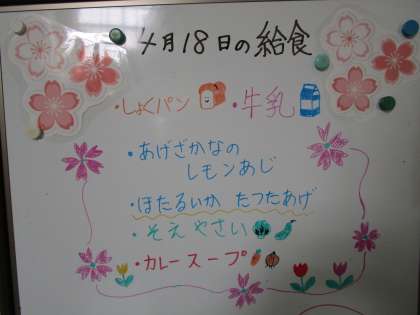 4月18日の給食
・しょくパン ・牛乳
・あげざかなの
レモンあじ
・ほたるいか たつたあげ
・そえやさい
・カレースープ